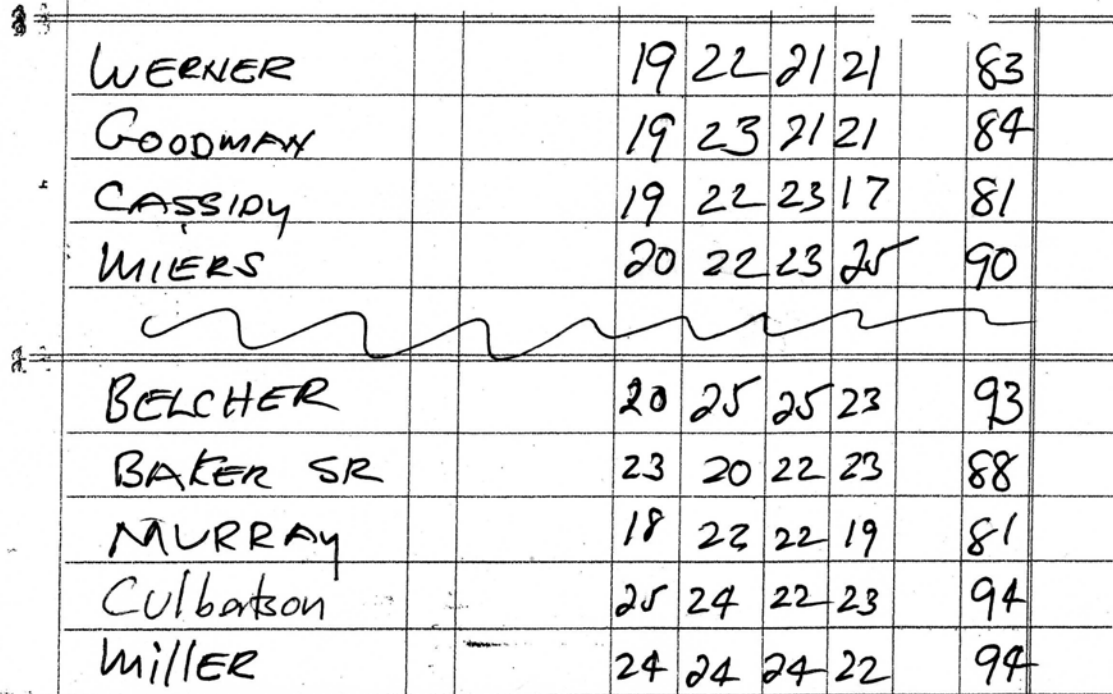 WERNER 19 22 21 21 83
GOODMAN 19 23 21 21 84
CASSIDY 19 22 23 17 81
MIERS 20 22 23 25 90
BELCHER 20 25 25 23 93
BAKER SR 23 20 22 23 88
MURRAY 18 22 22 19 81
Culbertson 25 24 22 23 94
Miller 24 24 24 22 94